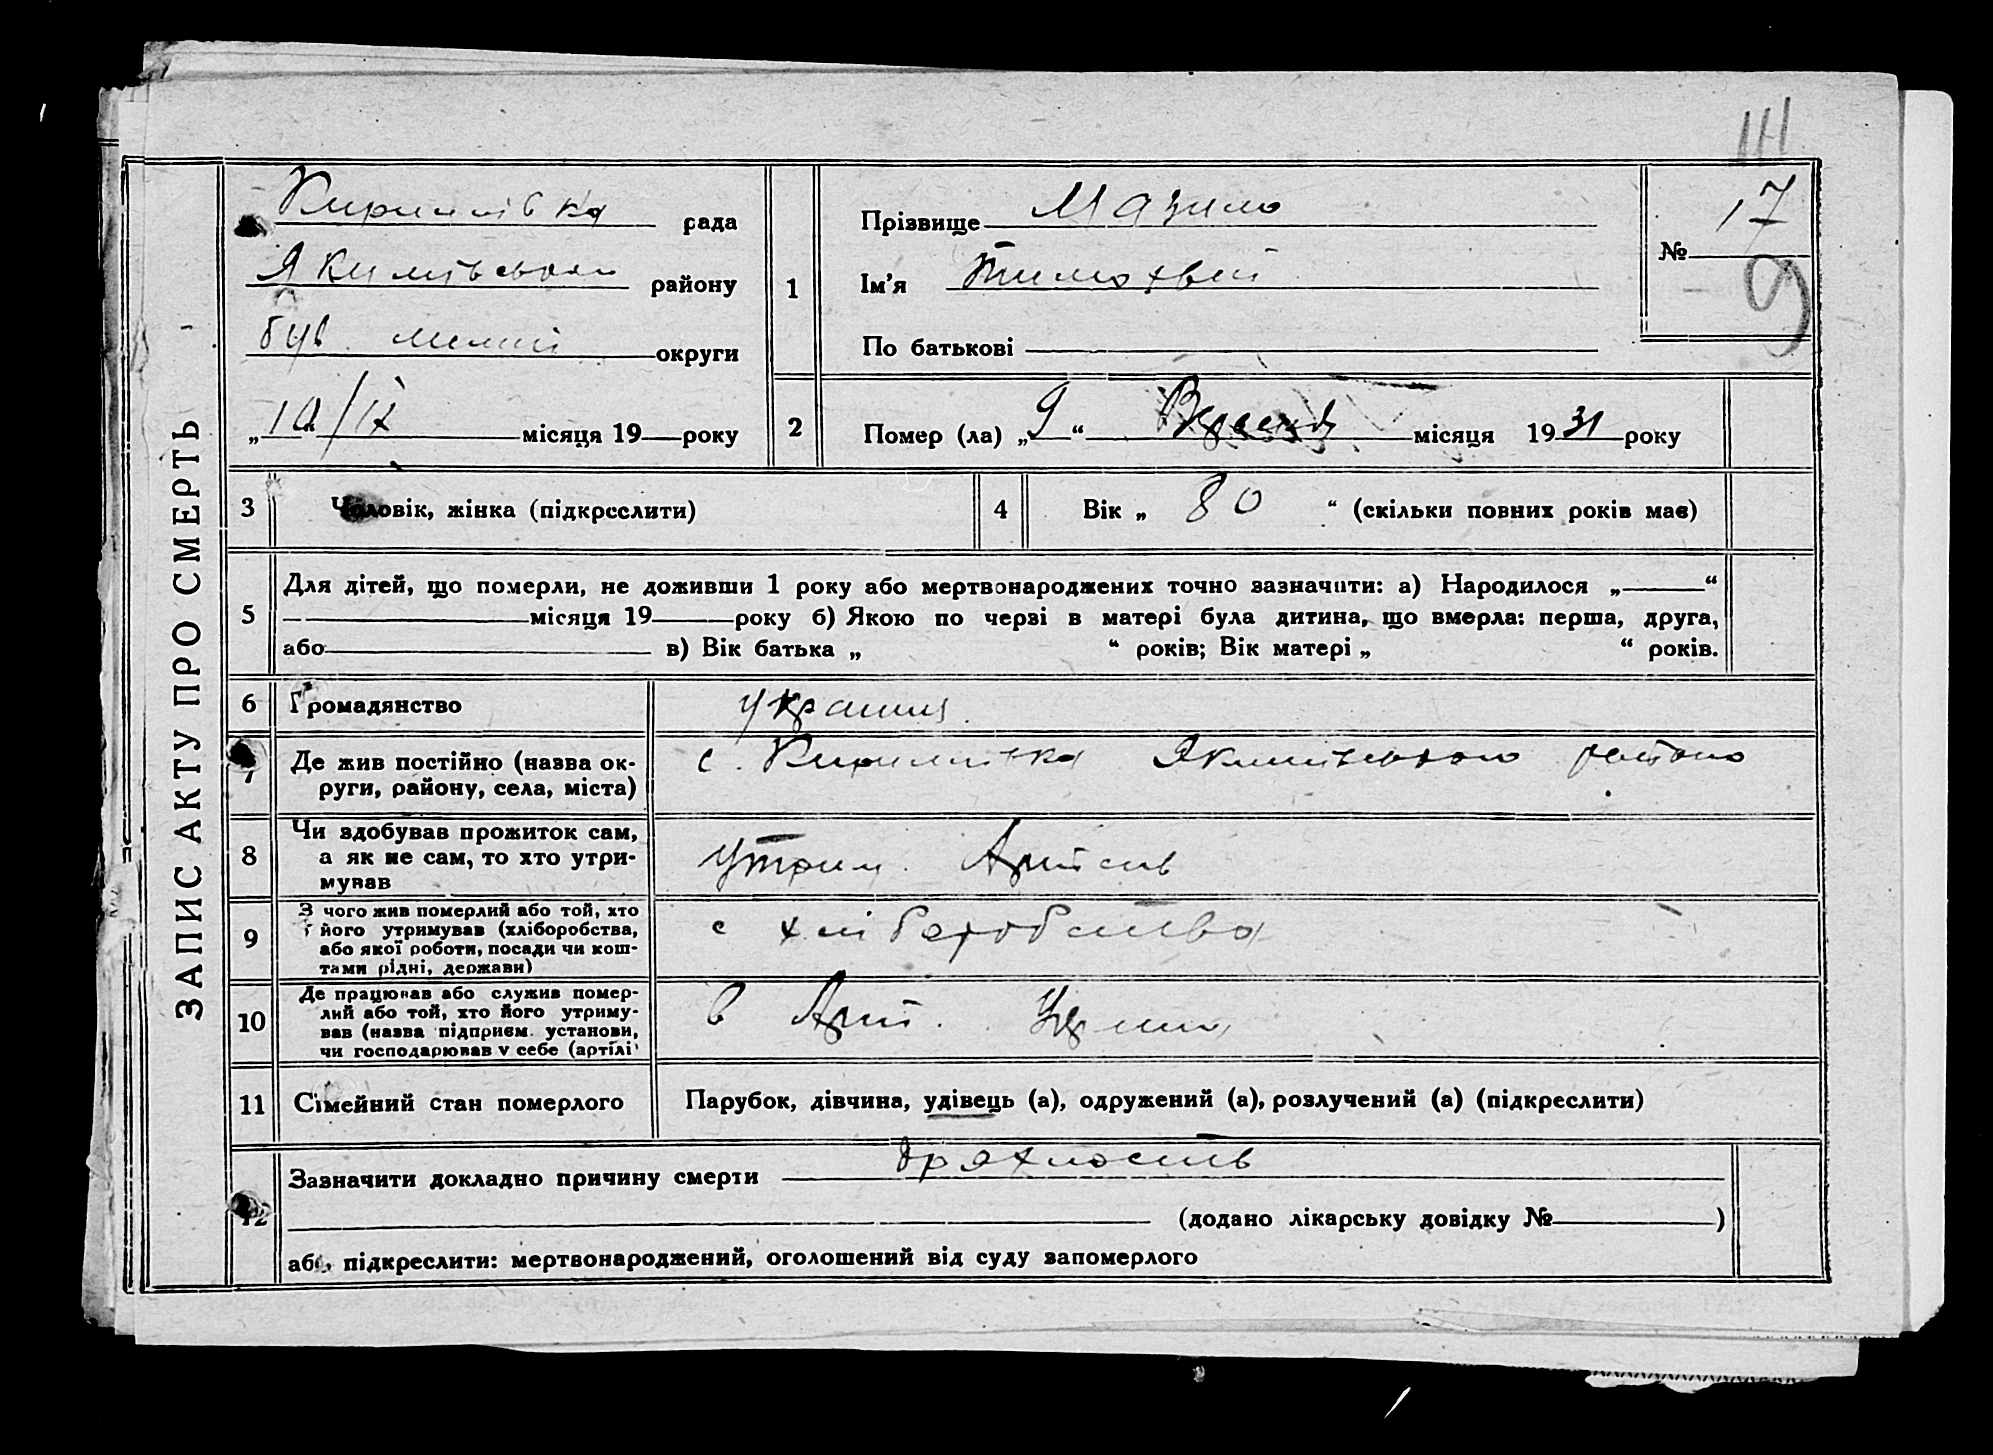 ЗАПИС АКТУ ПРО СМЕРТЬ
Кирилівка рада
Якимівськом району
був. мелит округи
„10“/IX місяця 19 року
1
Прізвище Мазило
Ім'я Тимохвій
По батькові
№ 17
9
2
Помер (ла) „9“ Вересня місяця 1931 року
3
Чоловік, жінка (підкреслити)
4
Вік „ 80 “ (скільки повних років має)
5
Для дітей, що померли, не доживши 1 року або мертвонароджених точно зазначити: а) Народилося „ “
місяця 19 року б) Якою по черві в матері була дитина, що вмерла: перша, друга,
або в) Вік батька „ “ років; Вік матері „ “ років.
6
Громадянство
7
Де жив постійно (назва ок-
руги, району, села, міста)
с. Кирилівка Якимівського району
8
Чи здобував прожиток сам,
а як не сам, то хто утри-
мував
утрим. Артєль
9
З чого жив померлий або той, хто
його утримував (хліборобства,
або якої роботи, посади чи кош-
тами рідні, держави)
с хліборобства
10
Де працював або служив помер-
лий або той, хто його утриму-
вав (назва підприєм. установи,
чи господарював у себе (артілі
в Арт.
11
Сімейний стан померлого
Парубок, дівчина, удівець (а), одружений (а), розлучений (а) (підкреслити)
12
Зазначити докладно причину смерти дряхлость
(додано лікарську довідку № )
або, підкреслити: мертвонароджений, оголошений від суду запомерлого